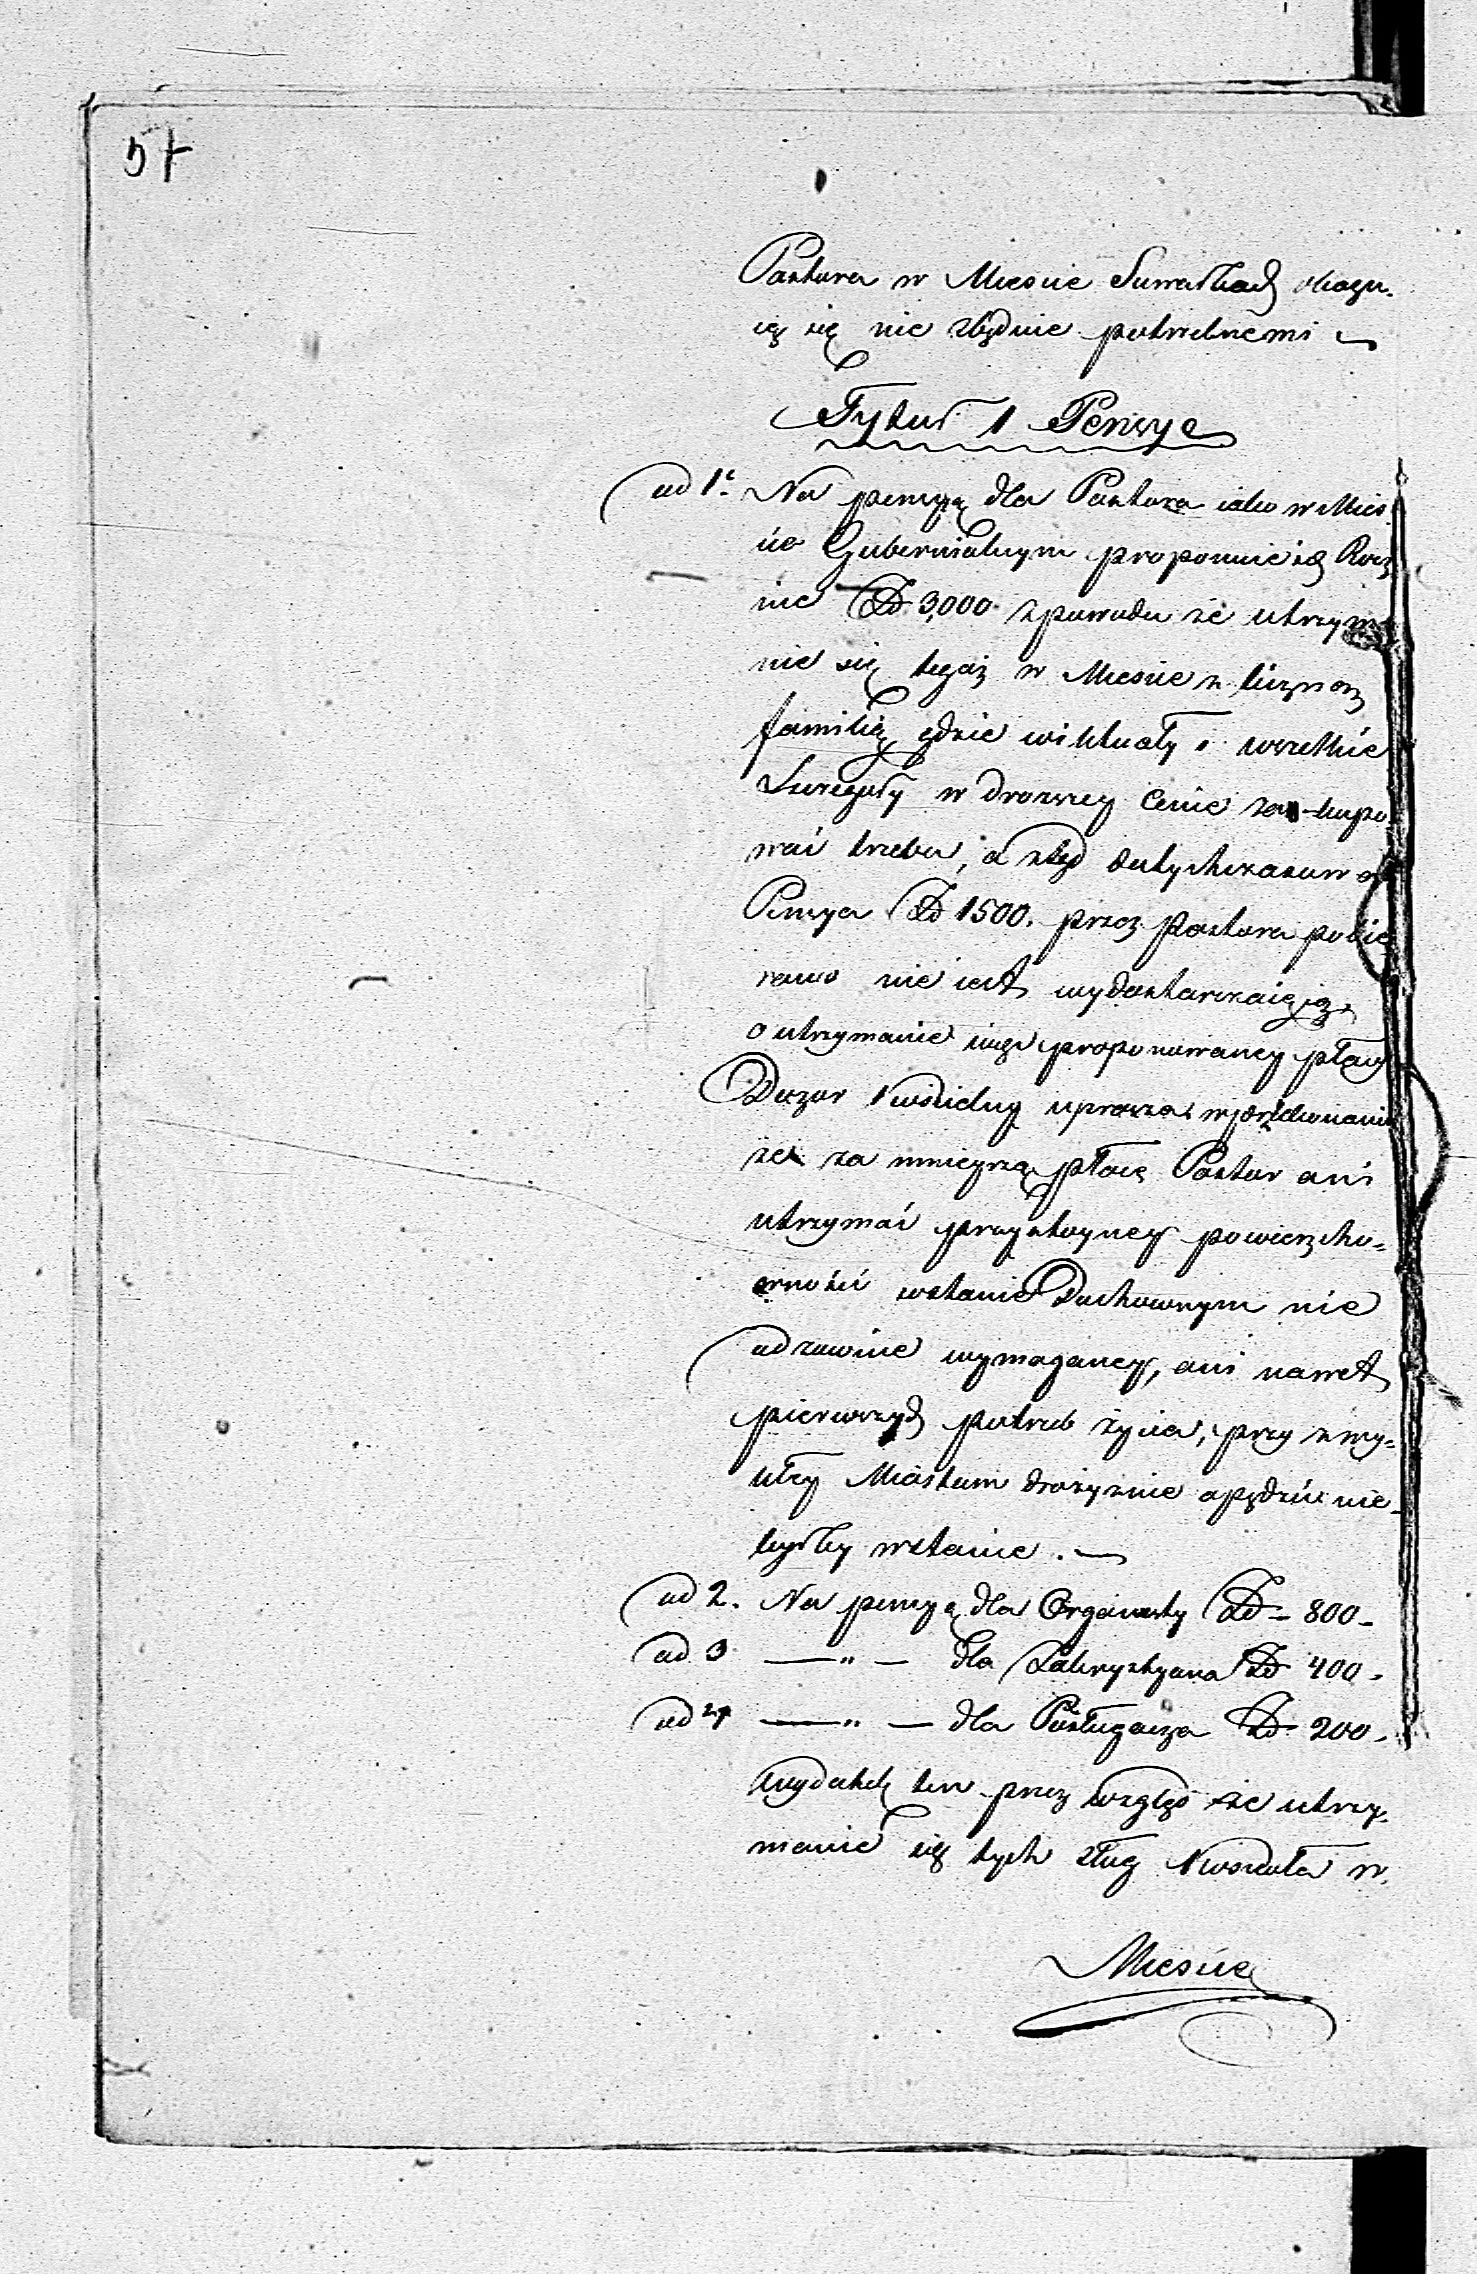 57
Pastora w Miescie Suwałkach okazu-
ią się nie zbędnie potrzebnemi
Tytuł 1 Pensye
ad 1. Na pensyą dla Pastora iako w Mieś
cie Gubernialnym proponuie się Rocz
nie Zł 3,000. z powodu że utrzyma
nie się tegoż w Mieście z liczną
familią gdzie wiktuały i wszelkie
Szczeguły w droższey Cenie zakupo
wać trzeba, a ztąd dotychczasowa
Pensya Zł 1500. przez Pastora pobie
rana nie iest wydostarczaiącą,
o utrzymanie więc proponowaney płacy
Dozór Kościelny uprasza w przekonaniu
że za mnieyszą płacę Pastor ani
utrzymać przystoyney powierzcho-
wności w stanie Duchownym nie
odzownie wymaganey, ani nawet
pierwszych potrzeb życia, przy zwy-
kłey Miastom drożyznie opędzić nie
byłby wstanie.
ad 2. Na pensyą dla Organisty Zł - 800 -
ad 3 — " — dla Zakrystyana Zł 400 -
ad 4 — " — dla Posługacza Zł 200 -
wydatek ten przez wzgląd że utrzy-
manie się tych sług Kościoła w
Mieście